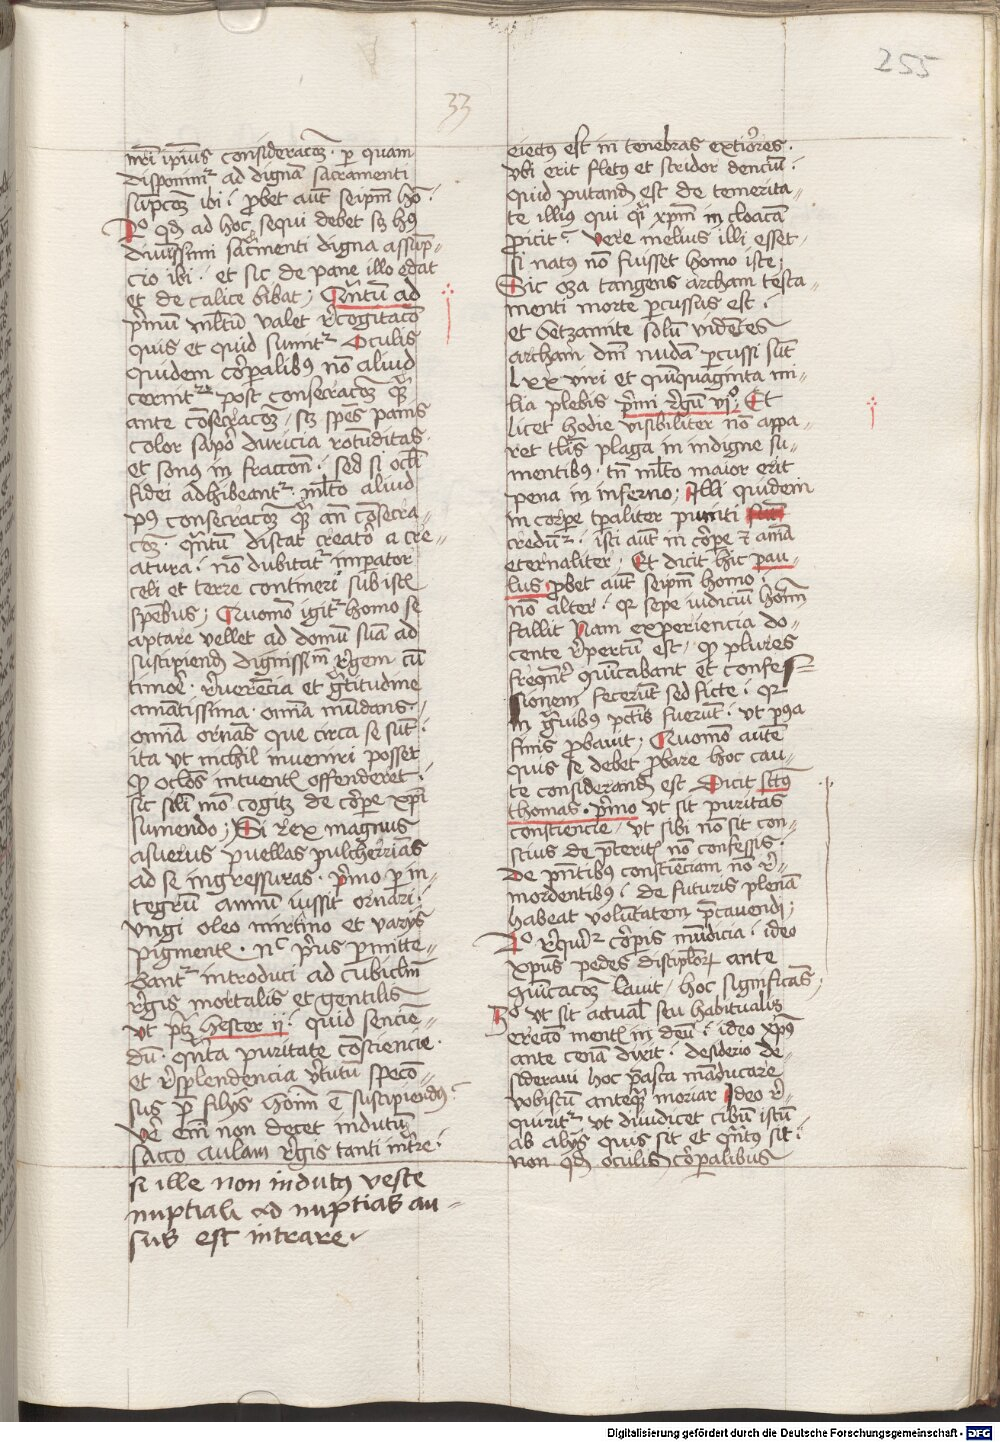 255
33
mri ipius consideracoem · p quam
disponimr ad dignā sacramenti
supcoem ibi · probet aut seipm ho ·
2o qdem ad hoc sequi debet sz hus
diuissimi sacramenti digna assump-
cio ibi · et sic de pane illo edat
et de calice bibat · Quntum ad
primū mltum valet recogitaco
quis et quid sumitr Oculis
quidem corporalibus nō aliud
cernitr post consecracoem qz
ante consecracoem / sz spes panis
color sapor duricia rotunditas
et sonus in fraccone · sed si ocli
fidei adhibeantr · mlto aliud
pus consecracoem qz an consecra-
coem · quntum distat creator a cre-
atura · non dubitatr imperator
celi et terre contineri sub istis
speciebus ; Quomo igitr homo se
aptare vellet ad domū suā ad
suscipiend dignissimum regem cū
timore · reuerencia et gratitudine
amantissima · omnia mundans ·
omnia ornans que circa se sunt ·
ita vt nichil inueniri posset
qd oclos intuentis offenderet ·
sic sili mō cogitz de corpe xpi
sumendo ; Si rex magnus
asuerus puellas pulcherrimas
ad se ingressuras · primo p in-
tegrum annum iussit ornari ·
vngi oleo mirtino et varys
pigmentis · nec prius pmitte-
bantr introduci ad cubiclm
regis mortalis et gentilis
vt ptz hester ij · quid sencie-
dū · qnta puritate conscientie ·
et resplendencia virtutum speco-
sus pre filys hominum e suscipiendus
Vere enim non decet indutum
sacco aulam regis tanti intrare ·
si ille non indutus veste
nuptiali ad nuptias au-
sus est intrare ·
eiectus est in tenebras extiores ·
vbi erit fletus et stridor denciū ·
quid putand est de temerita-
te illius qui qi xpm in cloacā
proicit · Vere melius illi esset
si natus nō fuisset homo iste ;
Sic oza tangens archam testa-
menti morte percussus est ·
et betzamite solum videntes
archam dni nudā percussi sūt
lxx viri et quinquaginta mi-
lia plebis primi regū vjo · Et
licet hodie visibiliter nō appa-
ret tlis plaga in indigne su-
mentibus · tn mlto maior erit
pena in inferno ; Illi quidem
in corpe tpaliter puniti
credunt · isti aut in corpe et anima
eternaliter · Et dicit hic pau-
lus probet aut seipm homo ·
nō alter · qr sepe iudicium hominum
fallit Nam experiencia do-
cente repertum est · qd plures
frequenter comunicabant et confes-
sionem fecerunt sed ficte · qr
in grauibus pctis fuerunt · vt pusa
finis probauit · Quomo autem
quis se debet probare hoc cau-
te considerand est Dicit sctus
thomas · primo vt sit puritas
consciencie / vt sibi nō sit con-
scius de preteritis nō confessis ·
de pntibus conscienciam nō re-
mordentibus · de futuris plenā
habeat voluntatem precauendi ;
2o requirr corporis mundicia · ideo
xpus pedes disciplor ante
comunicacoem lauit / hoc significans ·
3o vt sit actual seu habitualis
ereccio mentis in deū · ideo xpus
ante cenā dixit · desiderio de-
sideraui hoc pasca māducare
vobiscum anteqz moriar Ideo re-
quiritr vt diiudicet cibū istū
ab alys quis sit et qntus sit ·
non qdem oculis corporalibus
Digitalisierung gefördert durch die Deutsche Forschungsgemeinschaft - DFG